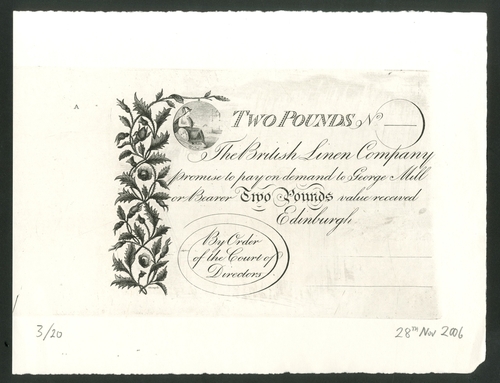 TWO POUNDS No
The British Linen Company
promise to pay on demand to George Mill
or Bearer Two Pounds value received
Edinburgh
By Order
of the Court of
Directors
3/20
28TH Nov 2006